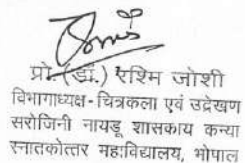 प्रो. (डॉ.) रश्मि जोशी
विभागाध्यक्ष - चित्रकला एवं उद्रेखण
सरोजिनी नायडू शासकाय कन्या
स्नातकोत्तर महाविद्यालय, भोपाल